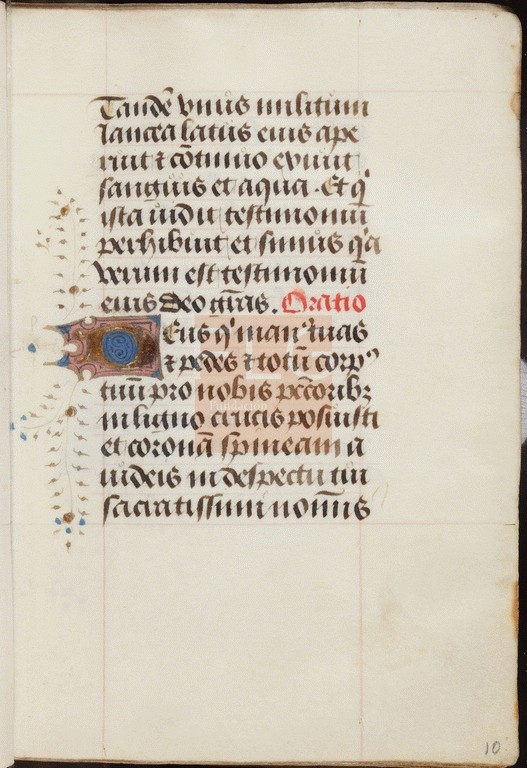 Tandē vnus militum
lancea latus eius ape
ruit ⁊ cōtinuo exiuit
sanguis et aqua. Et q̇
ista uidit testimoniū
perhibuit et scimus q̇a
verum est testimoniū
eius Deo grās. Oratio
Eus q̇ manꝰ tuas
⁊ pedes ⁊ totū corpꝰ
tuū pro nobis pc̄coribꝫ
in ligno crucis posuisti
et coronā spineam a
iudeis in despectu tui
sacratissimi nominis
10